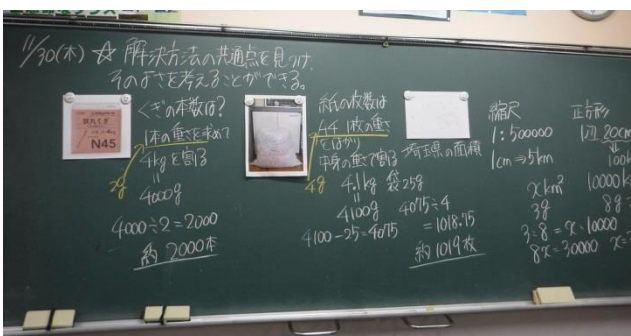 11/30(木) ☆ 解決方法の共通点を見つけ、
そのよさを考えることができる。
N45
くぎの本数は?
1本の重さを求めて
4kgを割る
2g
=
4000g
4000÷2=2000
約 2000本
紙の枚数は
A4 1枚の重さ
をはかり
中身の重さで割る
4g
4.1kg 袋25g
=
4100g
4100-25=4075
4075÷4
=1018.75
約1019枚
埼玉県の面積
縮尺
1:500000
1cm⇒5km
xkm²
3g
3:8=x:10000
8x=30000
正方形
20cm
10000k
8g
x=